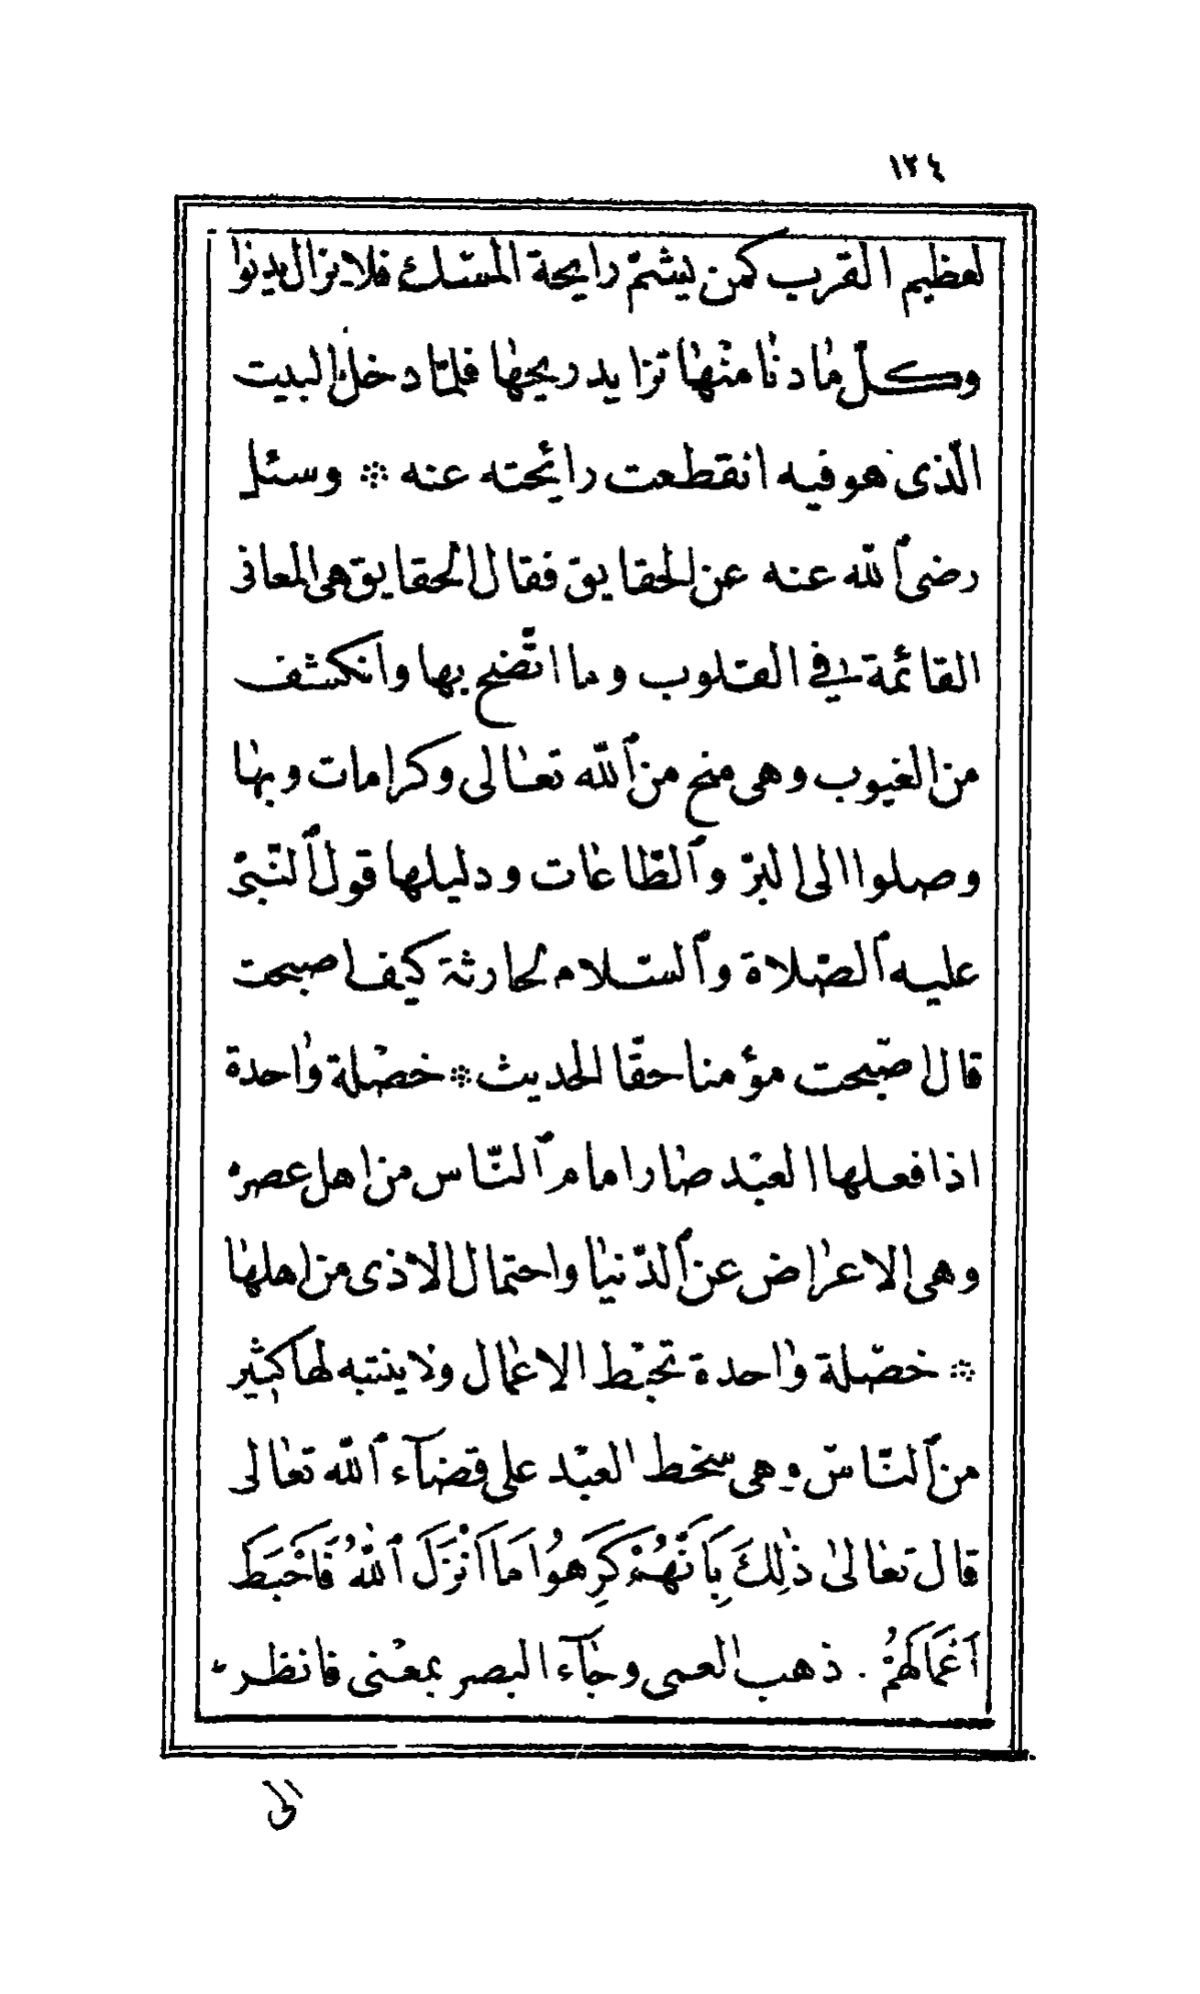 ١٢٤
لعظيم القرب كمن يشمّ رايحة المسك فلا يزال يدنوا
وكلّ ما دنا منها تزايد ريحها فلمّا دخل البيت
الّذى هو فيه انقطعت رائحته عنه ۞ وسئل
رضى ٱللّه عنه عن الحقايق فقال الحقايق هى المعانى
القائمة فى القلوب وما اتّضح بها وانكشف
من الغيوب وهى منح من ٱللّه تعالى وكرامات وبها
وصلوا الى البرّ وٱلطّاعات ودليلها قول ٱلنّبىّ
عليه ٱلصّلاة وٱلسّلام لحارثة كيف اصبحت
قال اصبحت مؤمنا حقّا الحديث ۞ خصلة واحدة
اذا فعلها العبد صار امام ٱلنّاس من اهل عصره
وهى الاعراض عن ٱلدّنيا واحتمال الاذى من اهلها
۞ خصلة واحدة تحبط الاعمال ولا ينتبه لها كثير
من ٱلنّاس وهى سخط العبد على قضآء ٱللّه تعالى
قال تعالى ذٰلِكَ بِاَنَّهُمْ كَرِهُوا مَا اَنْزَلَ ٱللّٰهُ فَاَحْبَطَ
اَعْمَالَهُمْ . ذهب العمى وجآء البصر بمعنى فانظر
الى